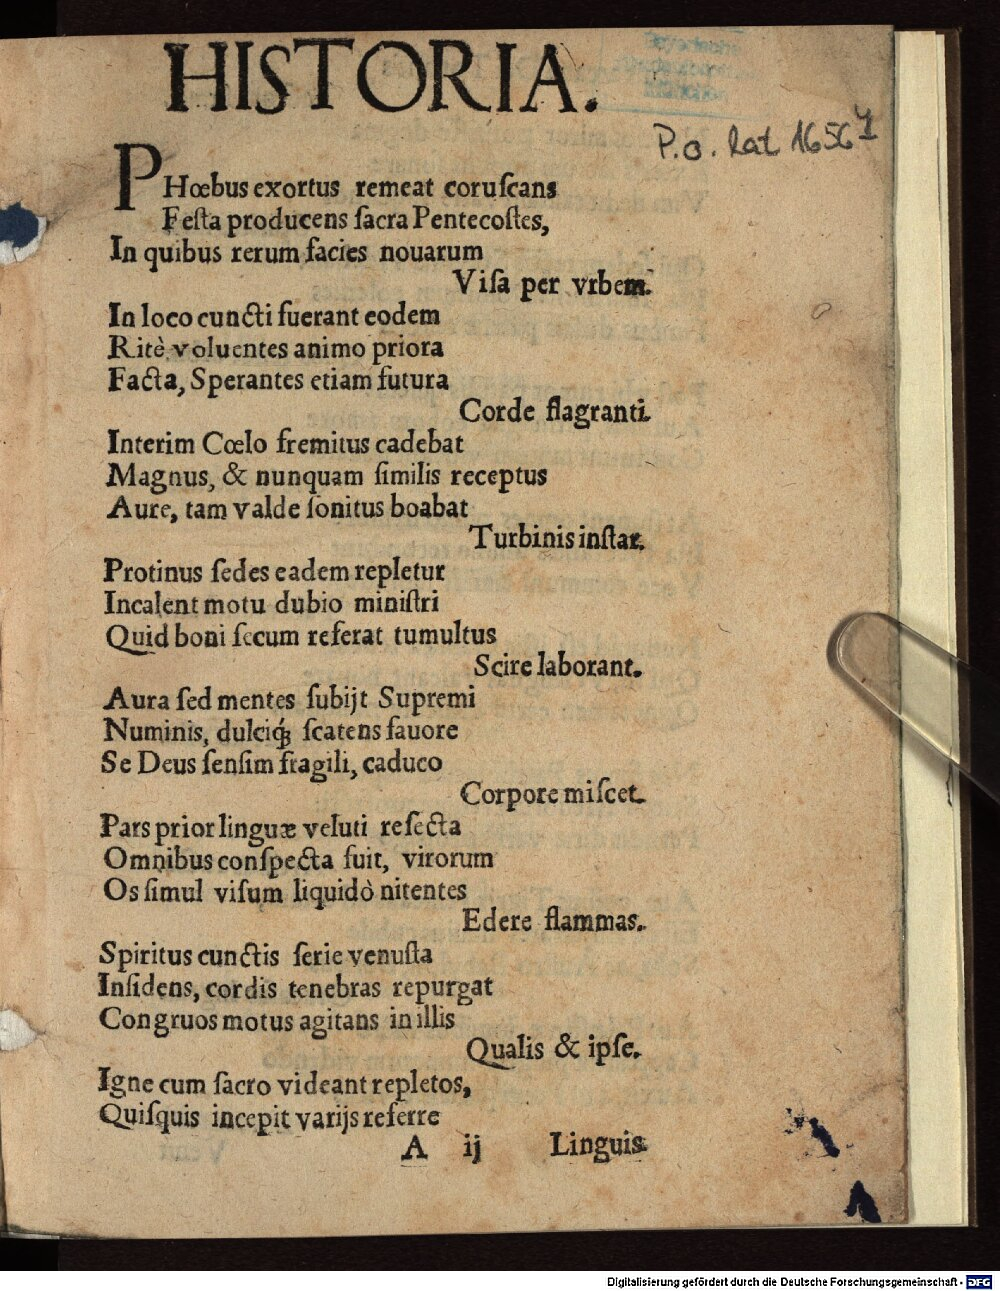 HISTORIA.
P.o. lat 1656 4
PHœbus exortus remeat coruſcans
Feſta producens ſacra Pentecoſtes,
In quibus rerum facies nouarum
Viſa per vrbem.
In loco cuncti fuerant eodem
Ritè voluentes animo priora
Facta, Sperantes etiam futura
Corde flagranti.
Interim Cœlo fremitus cadebat
Magnus, & nunquam ſimilis receptus
Aure, tam valde ſonitus boabat
Turbinis inſtar.
Protinus ſedes eadem repletur
Incalent motu dubio miniſtri
Quid boni ſecum referat tumultus
Scire laborant.
Aura ſed mentes ſubijt Supremi
Numinis, dulciq́ꝫ ſcatens fauore
Se Deus ſenſim fragili, caduco
Corpore miſcet.
Pars prior linguæ veluti reſecta
Omnibus conſpecta fuit, virorum
Os ſimul viſum liquidò nitentes
Edere flammas.
Spiritus cunctis ſerie venuſta
Inſidens, cordis tenebras repurgat
Congruos motus agitans in illis
Qualis & ipſe.
Igne cum ſacro videant repletos,
Quiſquis incepit varijs referre
A ij Linguis
Digitalisierung gefördert durch die Deutsche Forschungsgemeinschaft - DFG